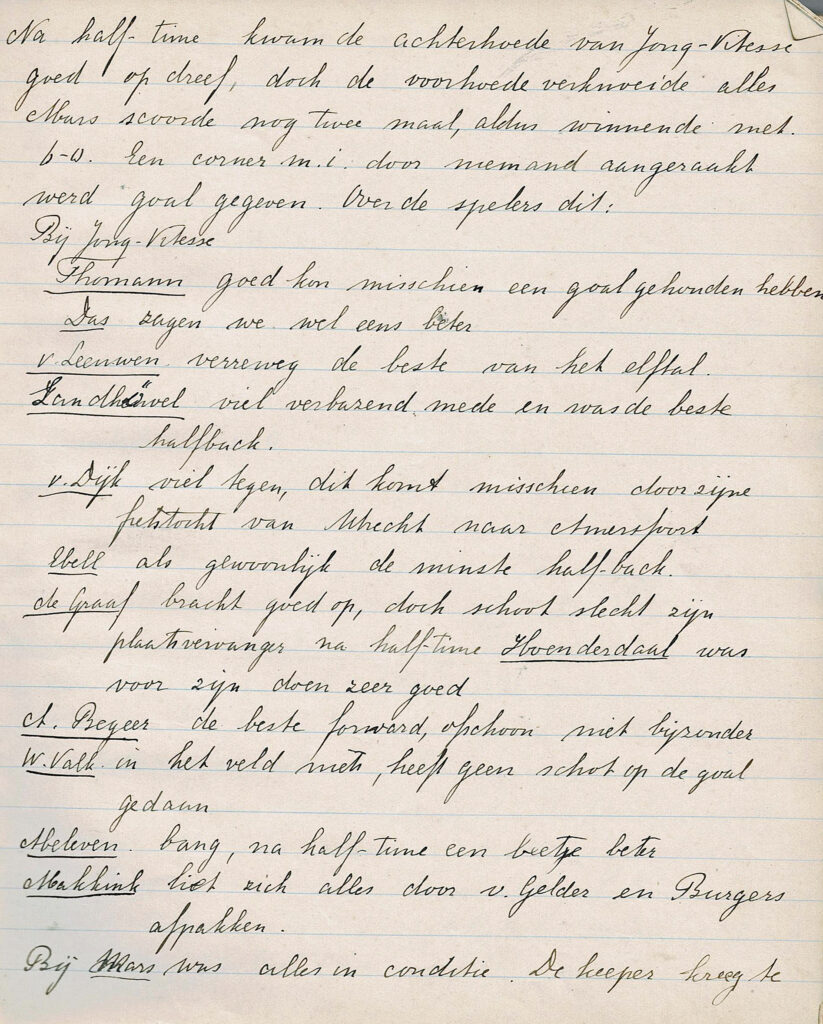 Na half-time kwam de achterhoede van Jong-Vitesse
goed op dreef, doch de voorhoede verknoeide alles
Mars scoorde nog twee maal, aldus winnende met.
6-0. Een corner m.i. door niemand aangeraakt
werd goal gegeven. Over de spelers dit:
Bij Jong-Vitesse
Thomann goed kon misschien een goal gehouden hebben
Das zagen we wel eens beter
v. Leeuwen. verreweg de beste van het elftal.
Zandheuvel viel verbazend mede en was de beste
halfback.
v. Dijk viel tegen, dit komt misschien door zijne
fietstocht van Utrecht naar Amersfoort
Ebell als gewoonlijk de minste half-back.
de Graaf bracht goed op, doch schoot slecht zijn
plaatsvervanger na half-time Hoenderdaal was
voor zijn doen zeer goed
A. Begeer de beste forward, ofschoon niet bijzonder
W. Valk in het veld niets, heeft geen schot op de goal
gedaan
Abeleven. bang, na half-time een beetje beter
Makkink liet zich alles door v. Gelder en Burgers
afpakken.
Bij Mars was alles in conditie. De keeper kreeg te